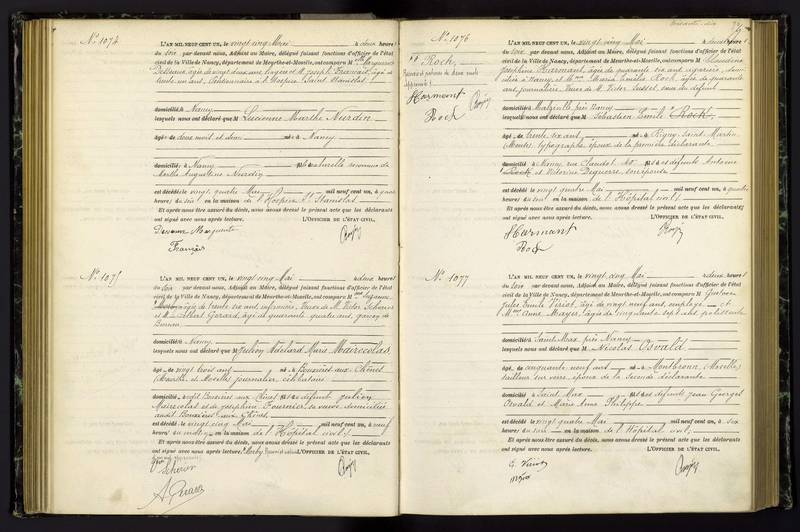 N° 1074
L'AN MIL NEUF CENT UN, le vingt cinq Mai à deux heures
du soir par devant nous, Adjoint au Maire, délégué faisant fonctions d'officier de l'état
civil de la Ville de Nancy, département de Meurthe-et-Moselle, ont comparu M elle Marguerite
âgée de vingt deux ans et M Joseph François, âgé de
trente un ans, à l'Hospice Saint Stanislas
domiciliés à Nancy
lesquels nous ont déclaré que M Lucienne Marthe Nurdin
âgée de deux mois et demi née à Nancy
domiciliée à Nancy fille naturelle reconnue de
Marthe Augustine Nurdin
est décédée le vingt quatre Mai mil neuf cent un, à
heures du soir en la maison de l'Hospice St Stanislas
Et après nous être assuré du décès, nous avons dressé le présent acte que les déclarants
ont signé avec nous après lecture. L'OFFICIER DE L'ÉTAT CIVIL,
Marguerite
François
N° 1075
L'AN MIL NEUF CENT UN, le vingt cinq Mai à deux heures
du soir par devant nous, Adjoint au Maire, délégué faisant fonctions d'officier de l'état
civil de la Ville de Nancy, département de Meurthe-et-Moselle, ont comparu M
âgée de trente six ans, infirmière, Veuve de M Victor Scherer
et M Albert Gérard, âgé de quarante quatre ans, garçon de
Bureau
domiciliés à Nancy
lesquels nous ont déclaré que M Julien Nicolard Marie Mairecolas
âgé de vingt trois ans né à Bouxières aux Chênes
(Meurthe et Moselle) journalier, célibataire
domicilié audit Bouxières aux Chênes fils de défunt Julien
Mairecolas et de Joséphine Fournier sa veuve, domiciliée
audit Bouxières aux Chênes,
est décédé le vingt cinq Mai mil neuf cent un, à neuf
heures du matin en la maison de l'Hôpital civil
Et après nous être assuré du décès, nous avons dressé le présent acte que les déclarants
ont signé avec nous après lecture. L'OFFICIER DE L'ÉTAT CIVIL,
Scherer
A. Gérard
N° 1076
Rock,
Harmant
Rock
L'AN MIL NEUF CENT UN, le vingt cinq Mai à deux heures
du soir par devant nous, Adjoint au Maire, délégué faisant fonctions d'officier de l'état
civil de la Ville de Nancy, département de Meurthe-et-Moselle, ont comparu M Claudine
Joséphine Harmant, âgée de quarante six ans
à Nancy, et Mme Maria Emilie Rock, âgée de quarante
ans, journalière, Veuve de M. Victor sœur du défunt
domiciliée à Malzéville près Nancy
lesquels nous ont déclaré que M Sébastien Emile Rock,
âgé de trente six ans né à Rigny Saint Martin
(Meuse) typographe, époux de la première déclarante
domicilié à Nancy, rue Claudot 40 fils de défunts Antoine
Rock et Victorine son épouse
est décédé le vingt quatre Mai mil neuf cent un, à quatre
heures du soir en la maison de l'Hôpital civil;
Et après nous être assuré du décès, nous avons dressé le présent acte que les déclarants
ont signé avec nous après lecture. L'OFFICIER DE L'ÉTAT CIVIL,
Harmant
Rock
N° 1077
L'AN MIL NEUF CENT UN, le vingt cinq Mai à deux heures
du soir par devant nous, Adjoint au Maire, délégué faisant fonctions d'officier de l'état
civil de la Ville de Nancy, département de Meurthe-et-Moselle, ont comparu M Gustave
Jules Emile Viriot, âgé de vingt neuf ans, employé et
Mme Anne Mayer, âgée de cinquante sept ans, sans profession
domiciliés à Saint Max près Nancy
lesquels nous ont déclaré que M Nicolas Osvald
âgé de cinquante neuf ans né à Montbronn (Moselle)
tailleur sur verre, époux de la seconde déclarante
domicilié à Saint Max fils de défunts Jean Georges
Osvald et Marie Anne Philippe
est décédé le vingt quatre Mai mil neuf cent un, à six
heures du soir en la maison de l'Hôpital civil;
Et après nous être assuré du décès, nous avons dressé le présent acte que les déclarants
ont signé avec nous après lecture. L'OFFICIER DE L'ÉTAT CIVIL,
G. Viriot